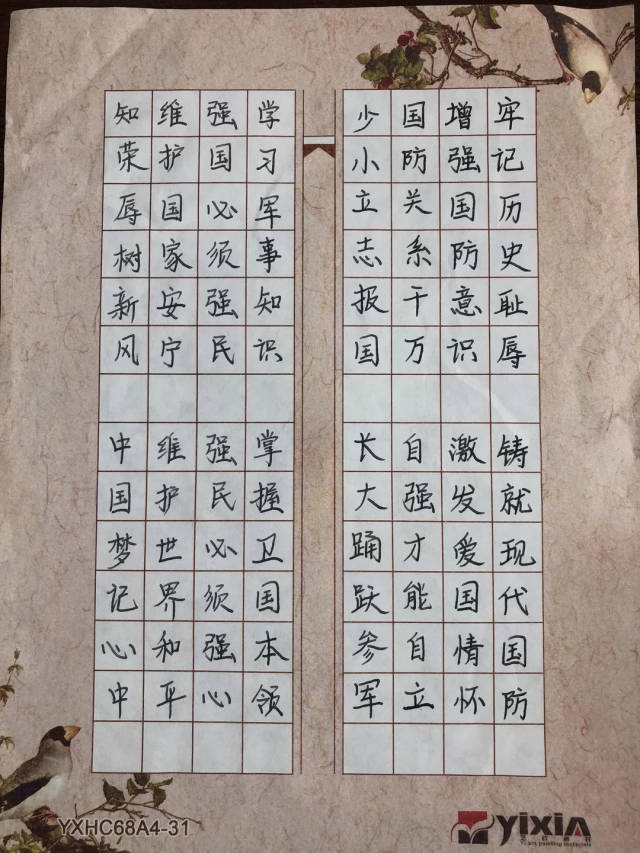 牢记历史耻辱 铸就现代国防
增强国防意识 激发爱国情怀
国防关系千万 自强才能自立
少小立志报国 长大踊跃参军
学习军事知识 掌握卫国本领
强国必须强民 强民必须强心
维护国家安宁 维护世界和平
知荣辱树新风 中国梦记心中
YXHC68A4-31
yixin